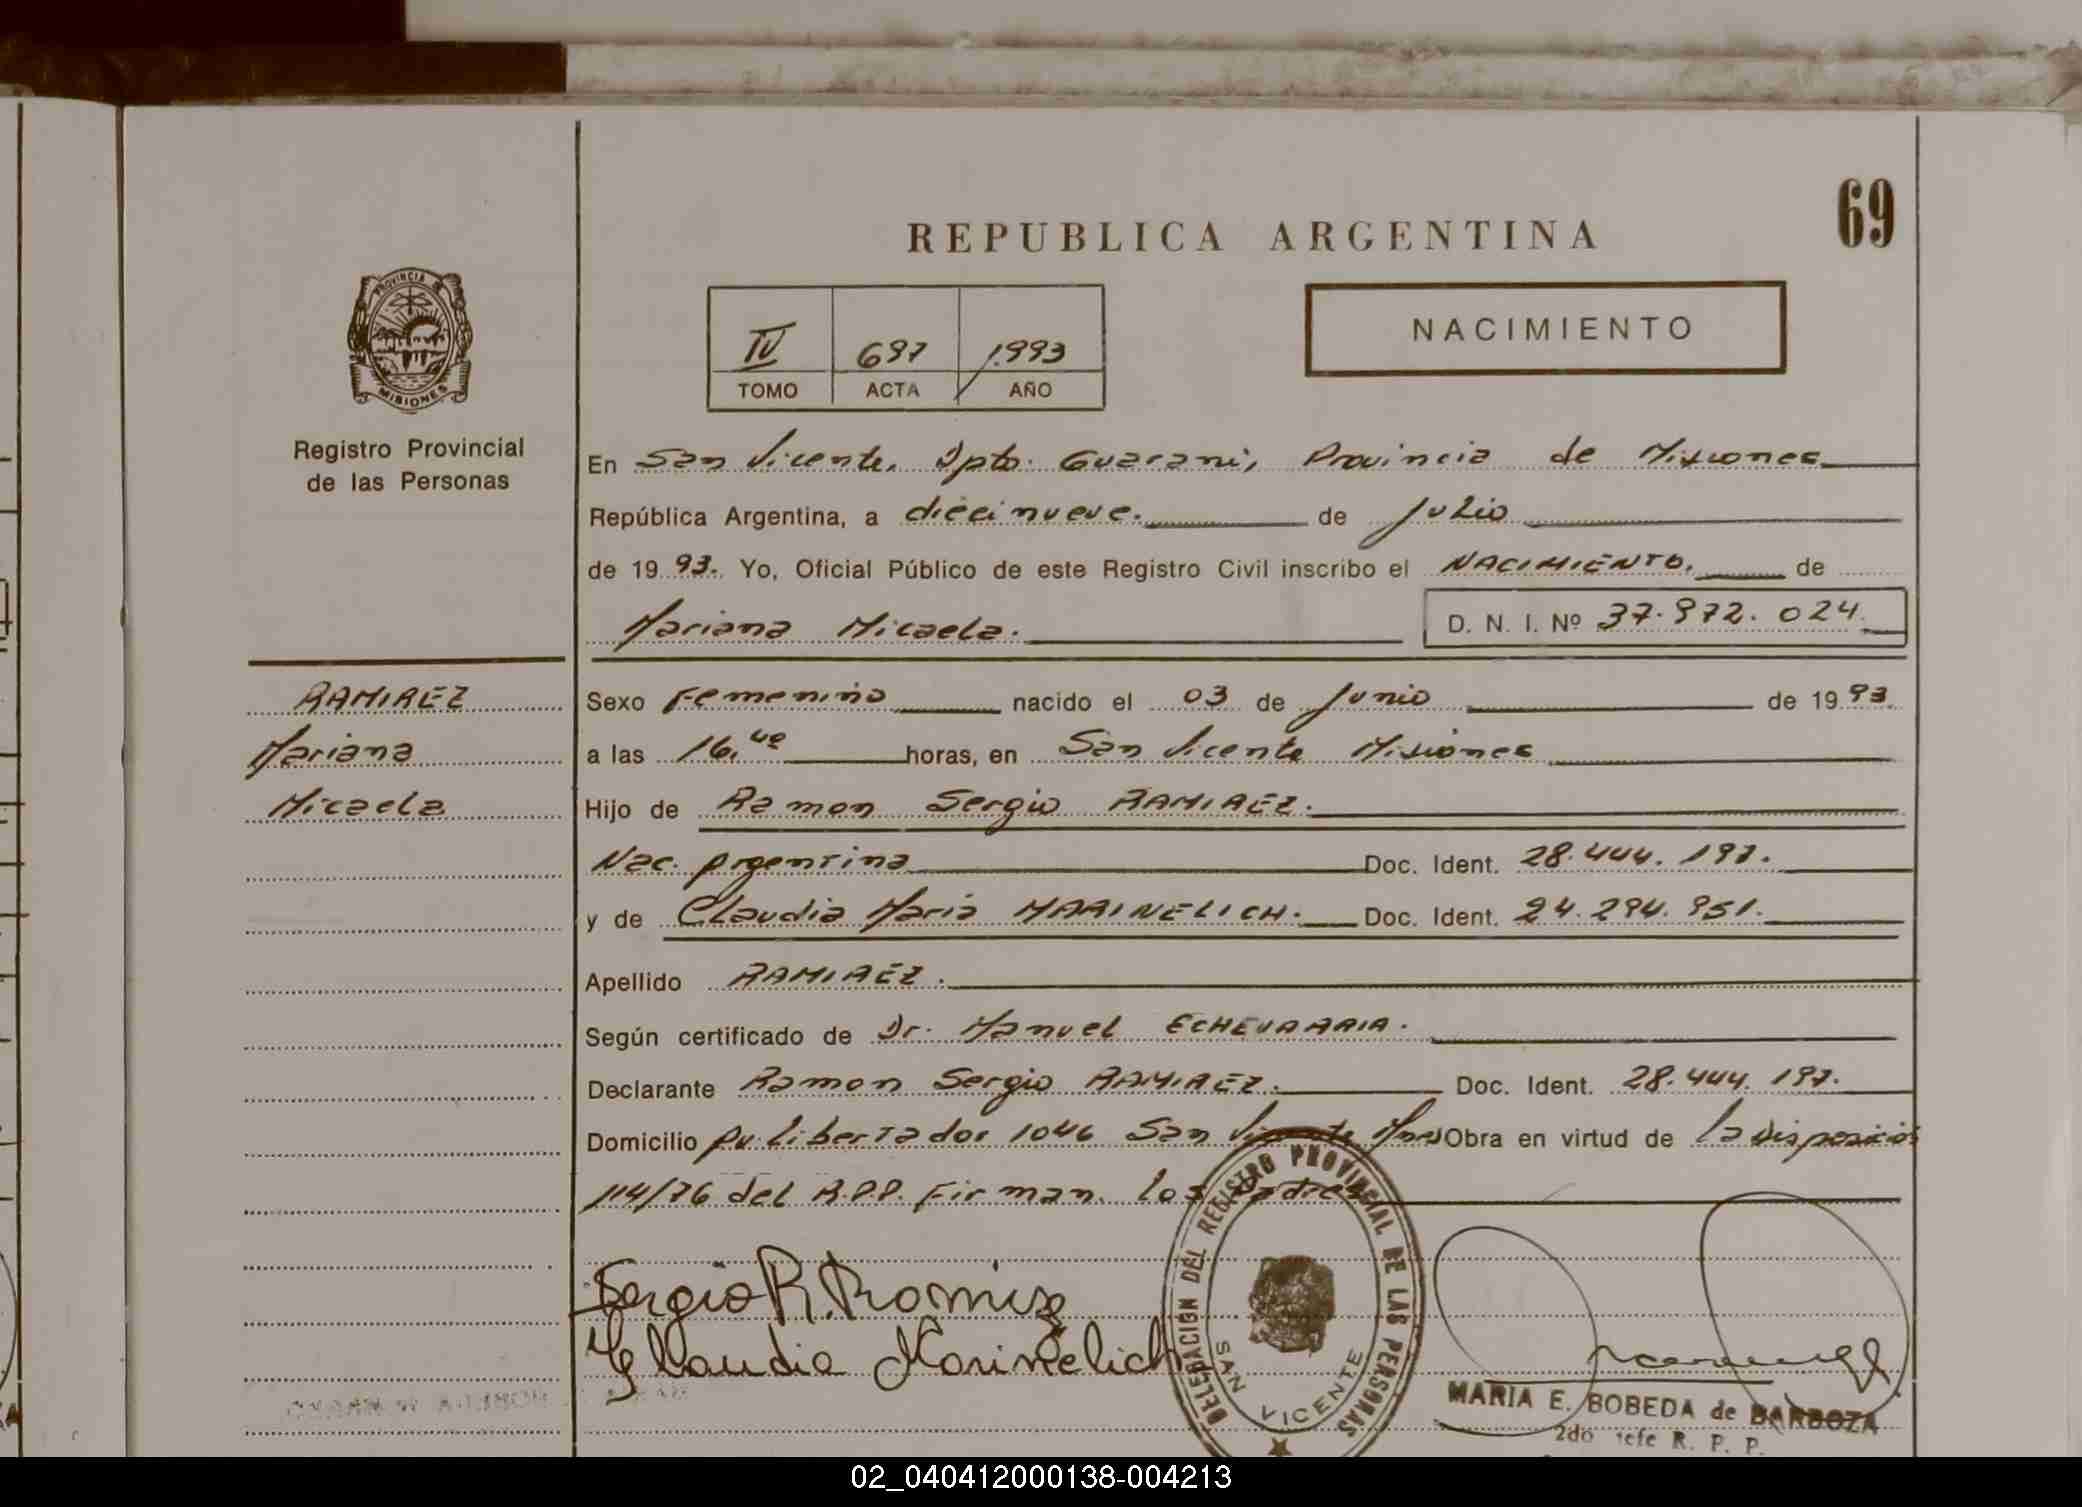 REPUBLICA ARGENTINA
69
PROVINCIA DE
MISIONES
Registro Provincial
de las Personas
IV 697 1993
TOMO ACTA AÑO
NACIMIENTO
En San Vicente, Dpto. Guarani, Provincia de Misiones
República Argentina, a diecinueve. de Julio
de 1993. Yo, Oficial Público de este Registro Civil inscribo el NACIMIENTO. de
Mariana Micaela.
D. N. I. Nº 37.972.024.
RAMIREZ
Mariana
Micaela
Sexo Femenino nacido el 03 de Junio de 1993.
a las 16,40 horas, en San Vicente Misiones
Hijo de Ramon Sergio RAMIREZ.
Nac. Argentina Doc. Ident. 28.444.197.
y de Claudia Maria MARINELICH. Doc. Ident. 24.294.951.
Apellido RAMIREZ.
Según certificado de Dr. Manuel ECHEVARRIA.
Declarante Ramon Sergio RAMIREZ. Doc. Ident. 28.444.197.
Domicilio Av. Libertador 1046 San Vicente Mnes Obra en virtud de la disposición
114/76 del R.P.P. Firman los Padres
Sergio R. Ramirez
Claudia Marinelich
DELEGACION DEL REGISTRO PROVINCIAL DE LAS PERSONAS
SAN VICENTE
MARIA E. BOBEDA de BARBOZA
2do Jefe R. P. P.
02_040412000138-004213